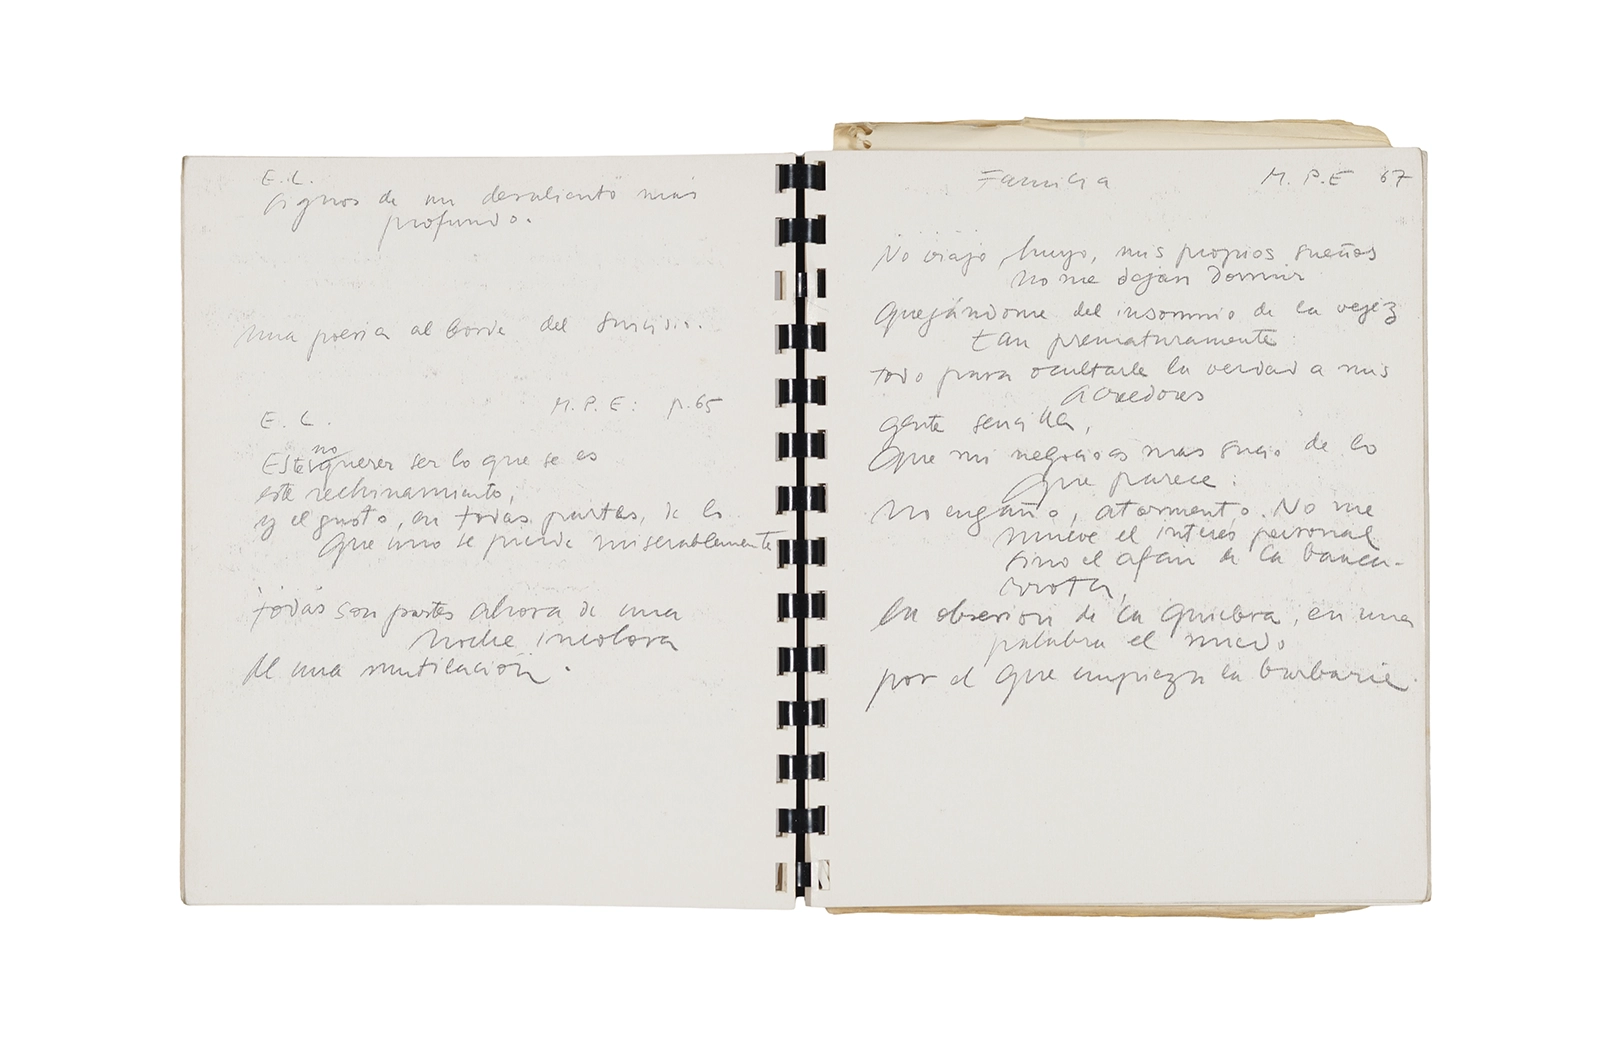 E.L.
signos de un desaliento más
profundo.
una poesia al borde del suicidio.
M.P.E: p.65
E.L.
Este no querer ser lo que se es
este rechinamiento,
y el gusto, en todas partes, de lo
que uno se pierde miserablemente
todas son partes ahora de una
noche incolora
de una mutilación.
Familia M.P.E 67
No viajo, huyo, mis propios sueños
no me dejan dormir
quejándome del insomnio de la vejez
tan prematuramente
todo para ocultarle la verdad a mis
acreedores
gente sencilla,
que mi negocio es mas sucio de lo
que parece.
No engaño, atormento. No me
mueve el interés personal
sino el afán de la banca-
rrota,
la obsesion de la quiebra, en una
palabra el miedo
por el que empieza la barbarie.